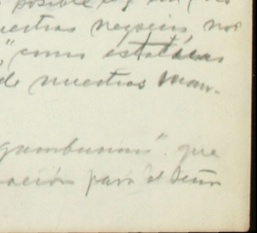 posible
uestros negocios nos
" como estabas
de nuestras man-
gambusinos" que
ación para el Señor